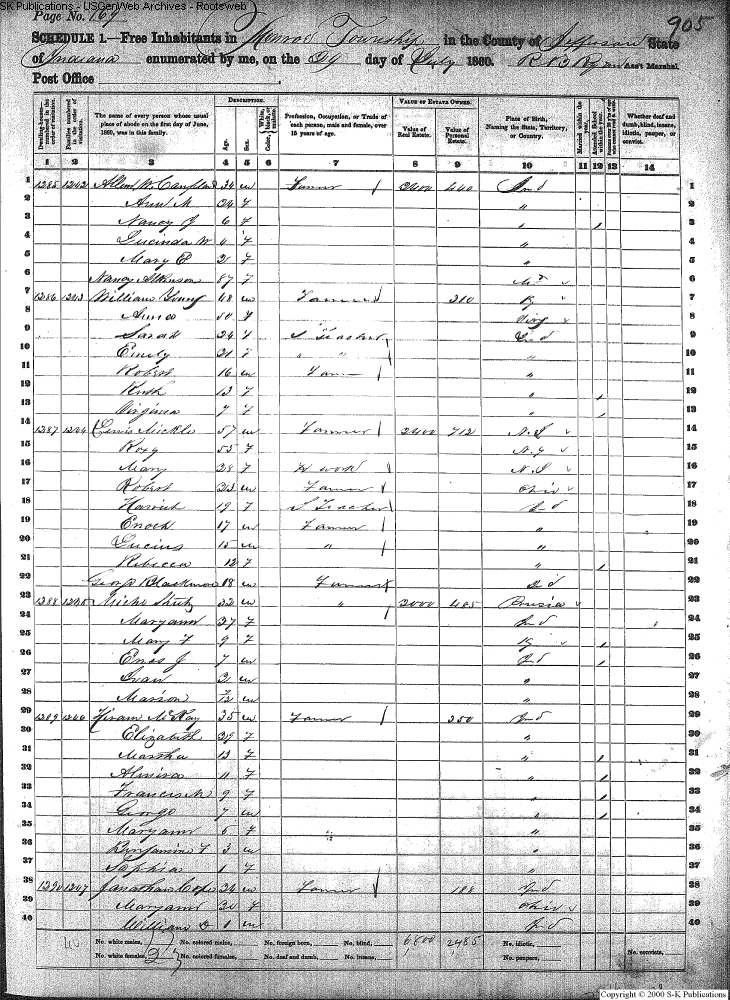 SK Publications - USGenWeb Archives - Rootsweb
Page No. 169
905
SCHEDULE 1.—Free Inhabitants in Monroe Township in the County of Jefferson State
of Indiana enumerated by me, on the day of July 1860. R B Ryan Ass't Marshal.
Post Office
Dwelling-houses— numbered in the order of visitation.
Families numbered in the order of visitation.
The name of every person whose usual place of abode on the first day of June, 1860, was in this family.
DESCRIPTION.
Age.
Sex.
Color, White, black, or mulatto.
Profession, Occupation, or Trade of each person, male and female, over 15 years of age.
VALUE OF ESTATE OWNED.
Value of Real Estate.
Value of Personal Estate.
Place of Birth, Naming the State, Territory, or Country.
Married within the year.
Attended School within the year.
Whether deaf and dumb, blind, insane, idiotic, pauper, or convict.
1 2 3 4 5 6 7 8 9 10 11 12 13 14
1 1285 1242 Allen W 34 m Farmer 2400 640 Ind 1
2 Ann M 24 f " 2
3 Nancy J 6 f 3
4 Lucinda W 4 f " 4
5 Mary E 2 f " 5
6 Nancy Atkinson 87 f 6
7 1286 1243 William 48 m Farmer 210 Ky 7
8 Anna 50 f Virg 8
9 Sarah 24 f S Teacher Ind 9
10 Emily 21 f " " " 10
11 Robert 16 m Farm " 11
12 Ruth 13 f " 12
13 Virginia 7 f " 13
14 1287 1244 Lewis Mickle 57 m Farmer 2400 712 N. J 14
15 Roxy 55 f N. Y 15
16 Mary 38 f H work N. J 16
17 Robert 33 m Farmer Ohio 17
18 Harriet 19 f S Teacher Ind 18
19 Enoch 17 m Farmer " 19
20 Lucius 15 m " " 20
21 Rebecca 12 f " 21
22 George Blackmore 18 m Farmer Ind 22
23 1288 1245 32 m " 2000 485 Prusia 23
24 Maryann 37 f Ind 24
25 Mary F 9 f Ky 25
26 Enos J 7 m Ind 26
27 2 m " 27
28 Marion /12 m " 28
29 1289 1246 Hiram McKay 35 m Farmer 350 Ind 29
30 Elizabeth 35 f " 30
31 Martha 13 f " 31
32 Almira 11 f " 32
33 Francis M 9 f " 33
34 George 7 m " 34
35 Maryann 5 f " 35
36 Benjamin F 3 m " 36
37 Sophia 1 f " 37
38 1290 1247 Jonathan Cope 24 m Farmer 188 Ind 38
39 Maryann 20 f Ohio 39
40 William D 1 m Ind 40
40 No. white males, 17 No. colored males, No. foreign born, No. blind, 6800 2485 No. idiotic,
No. white females, No. colored females, No. deaf and dumb, No. insane, No. paupers, No. convicts,
Copyright © 2000 S-K Publications